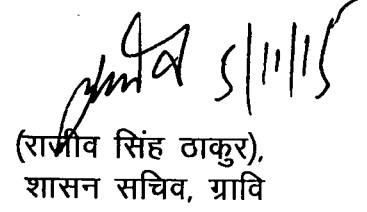 5/11/15
(राजीव सिंह ठाकुर),
शासन सचिव, ग्रावि